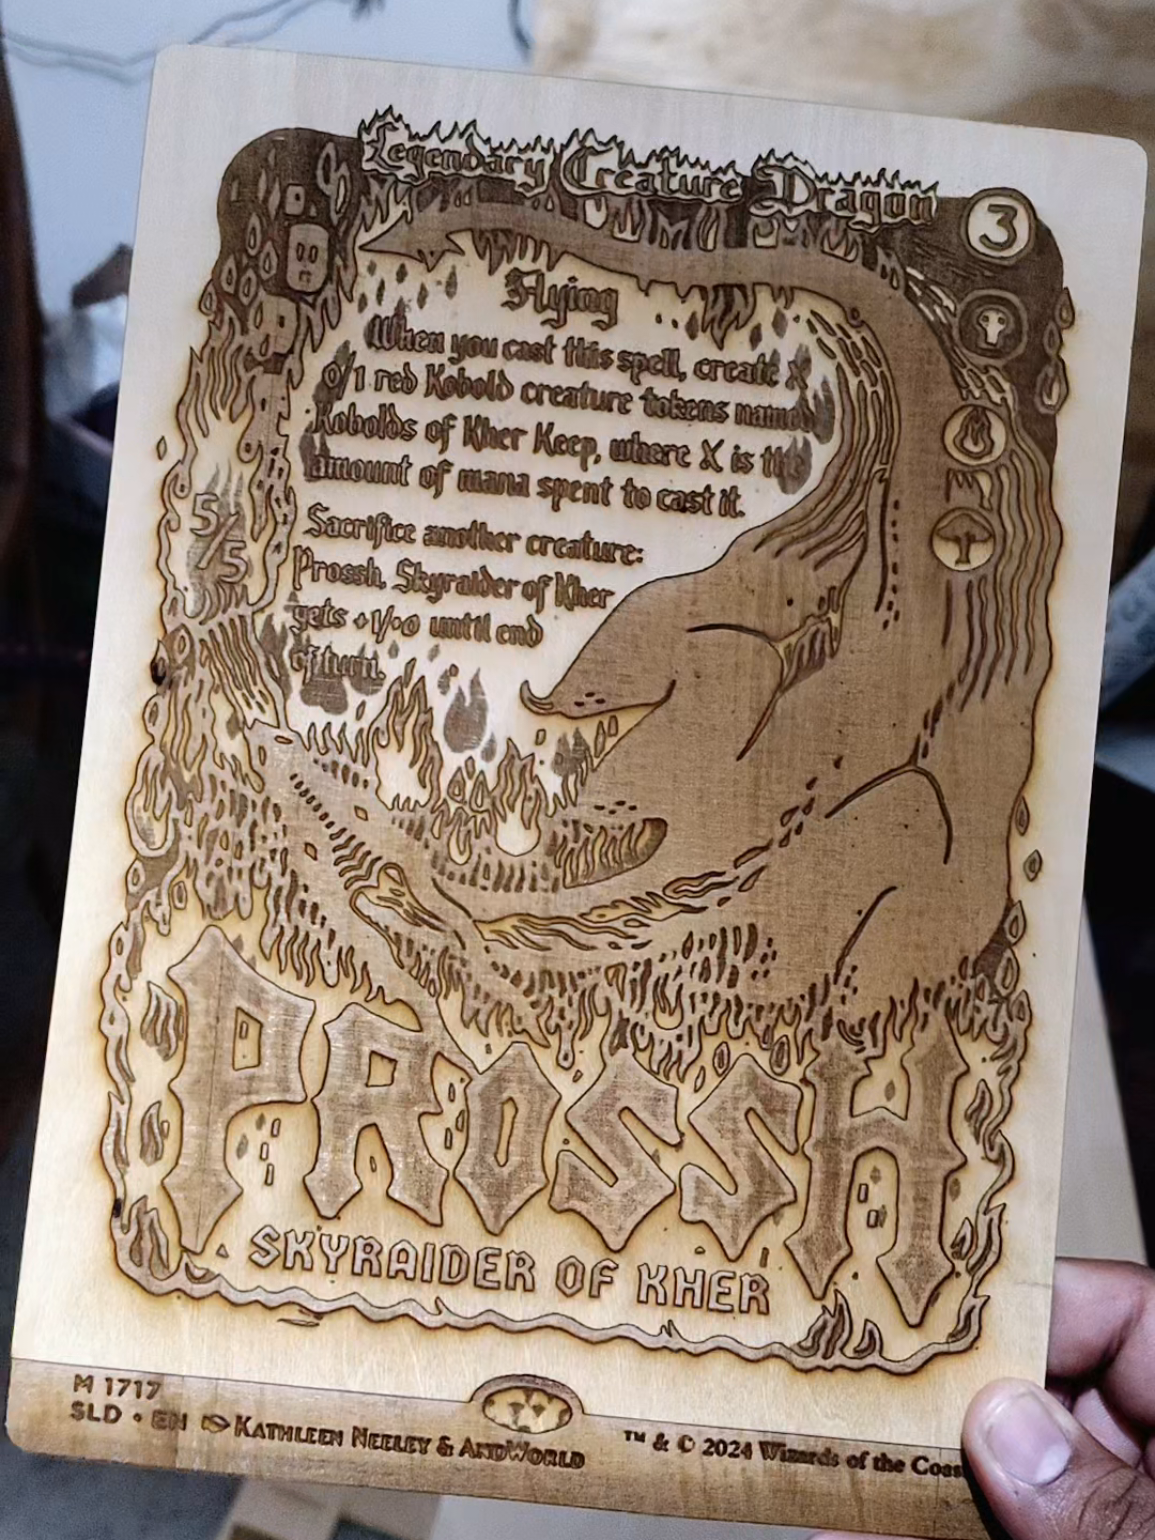 Legendary Creature Dragon
3
Flying
When you cast this spell, create X
0/1 red Kobold creature tokens named
Kobolds of Kher Keep, where X is the
amount of mana spent to cast it.
Sacrifice another creature:
Prossh, Skyraider of Kher
gets +1/+0 until end
of turn.
5/5
PROSSH
SKYRAIDER OF KHER
M 1717
SLD • EN KATHLEEN NEELEY & ANDWORLD
™ & © 2024 Wizards of the Coas